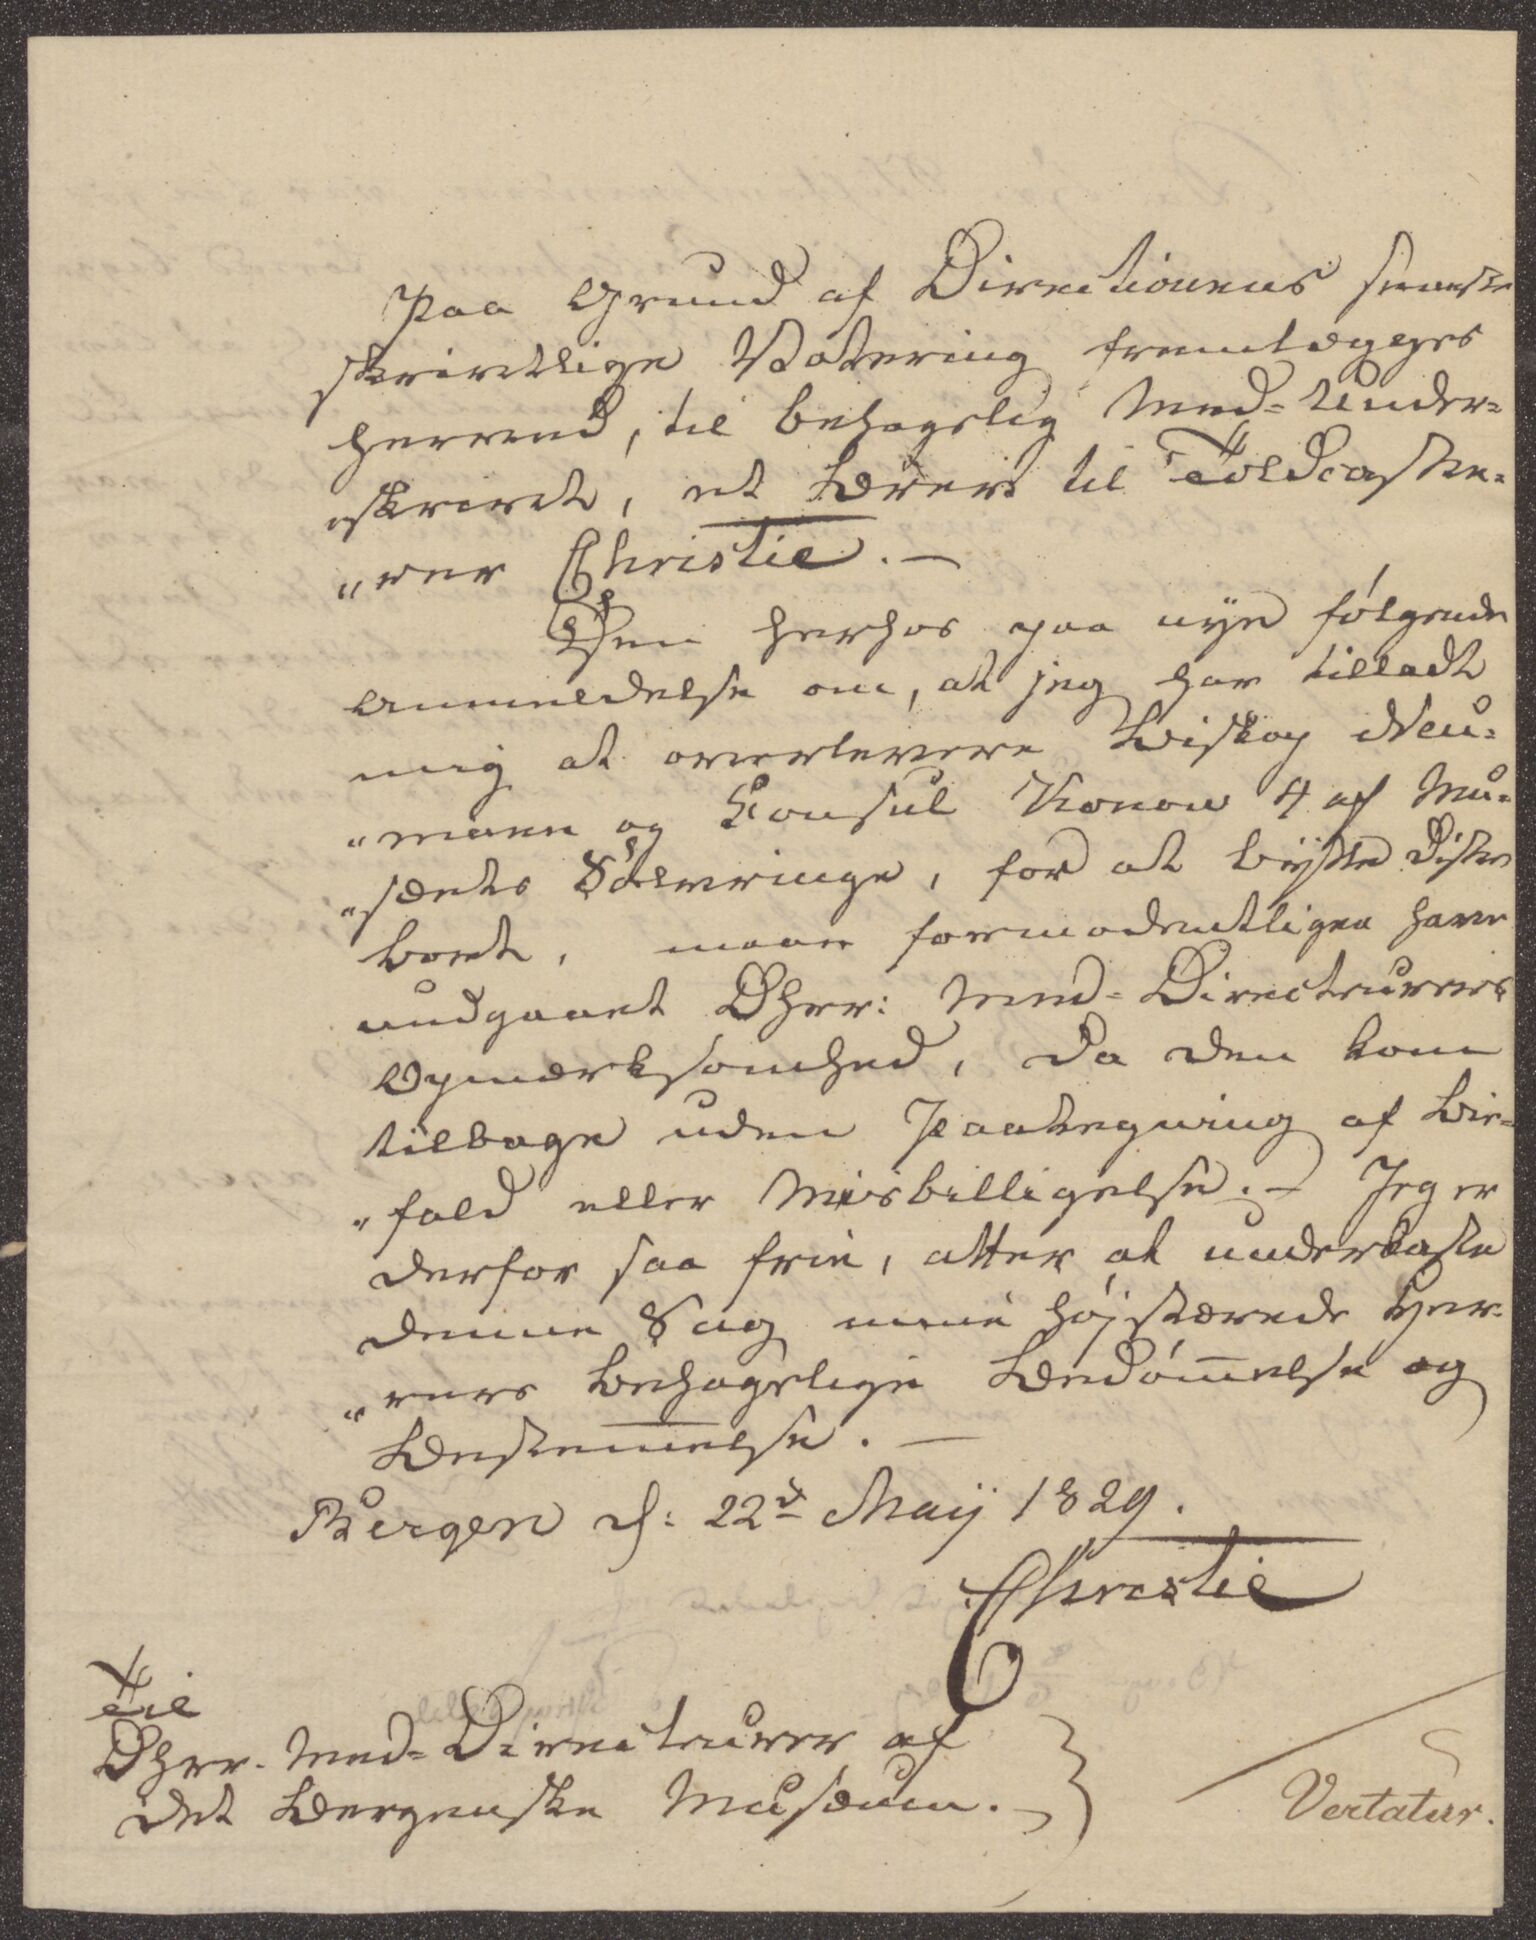 Paa Grund af Directionens seneste
skrivtlige Votering fremlægges
herved, til behagelig Med-Under-
„skrivt, et Brev til Toldcasse-
„rer Christie. —
Den herhos paa nye følgende
Anmeldelse om, at jeg har tilladt
mig at overlevere Biskop Neu-
„mann og Consul Konow 4 af Mu-
„sæets Sølvringe, for at bytte disse
bort, maae formodentligen have
undgaaet DHrr: Med-Directeurers
Opmærksomhed, da den kom
tilbage uden Paategning af Bi-
„fald eller Misbilligelse. – Jeg er
derfor saa frie, atter at underkaste
denne Sag mine højstærede Her-
„rers behagelige Bedømmelse og
Bestemmelse. —
Bergen d: 22d Maij 1829.
Christie
Til
DHrr. Med-Directeurer af
det Bergenske Musæum.
Vertatur.